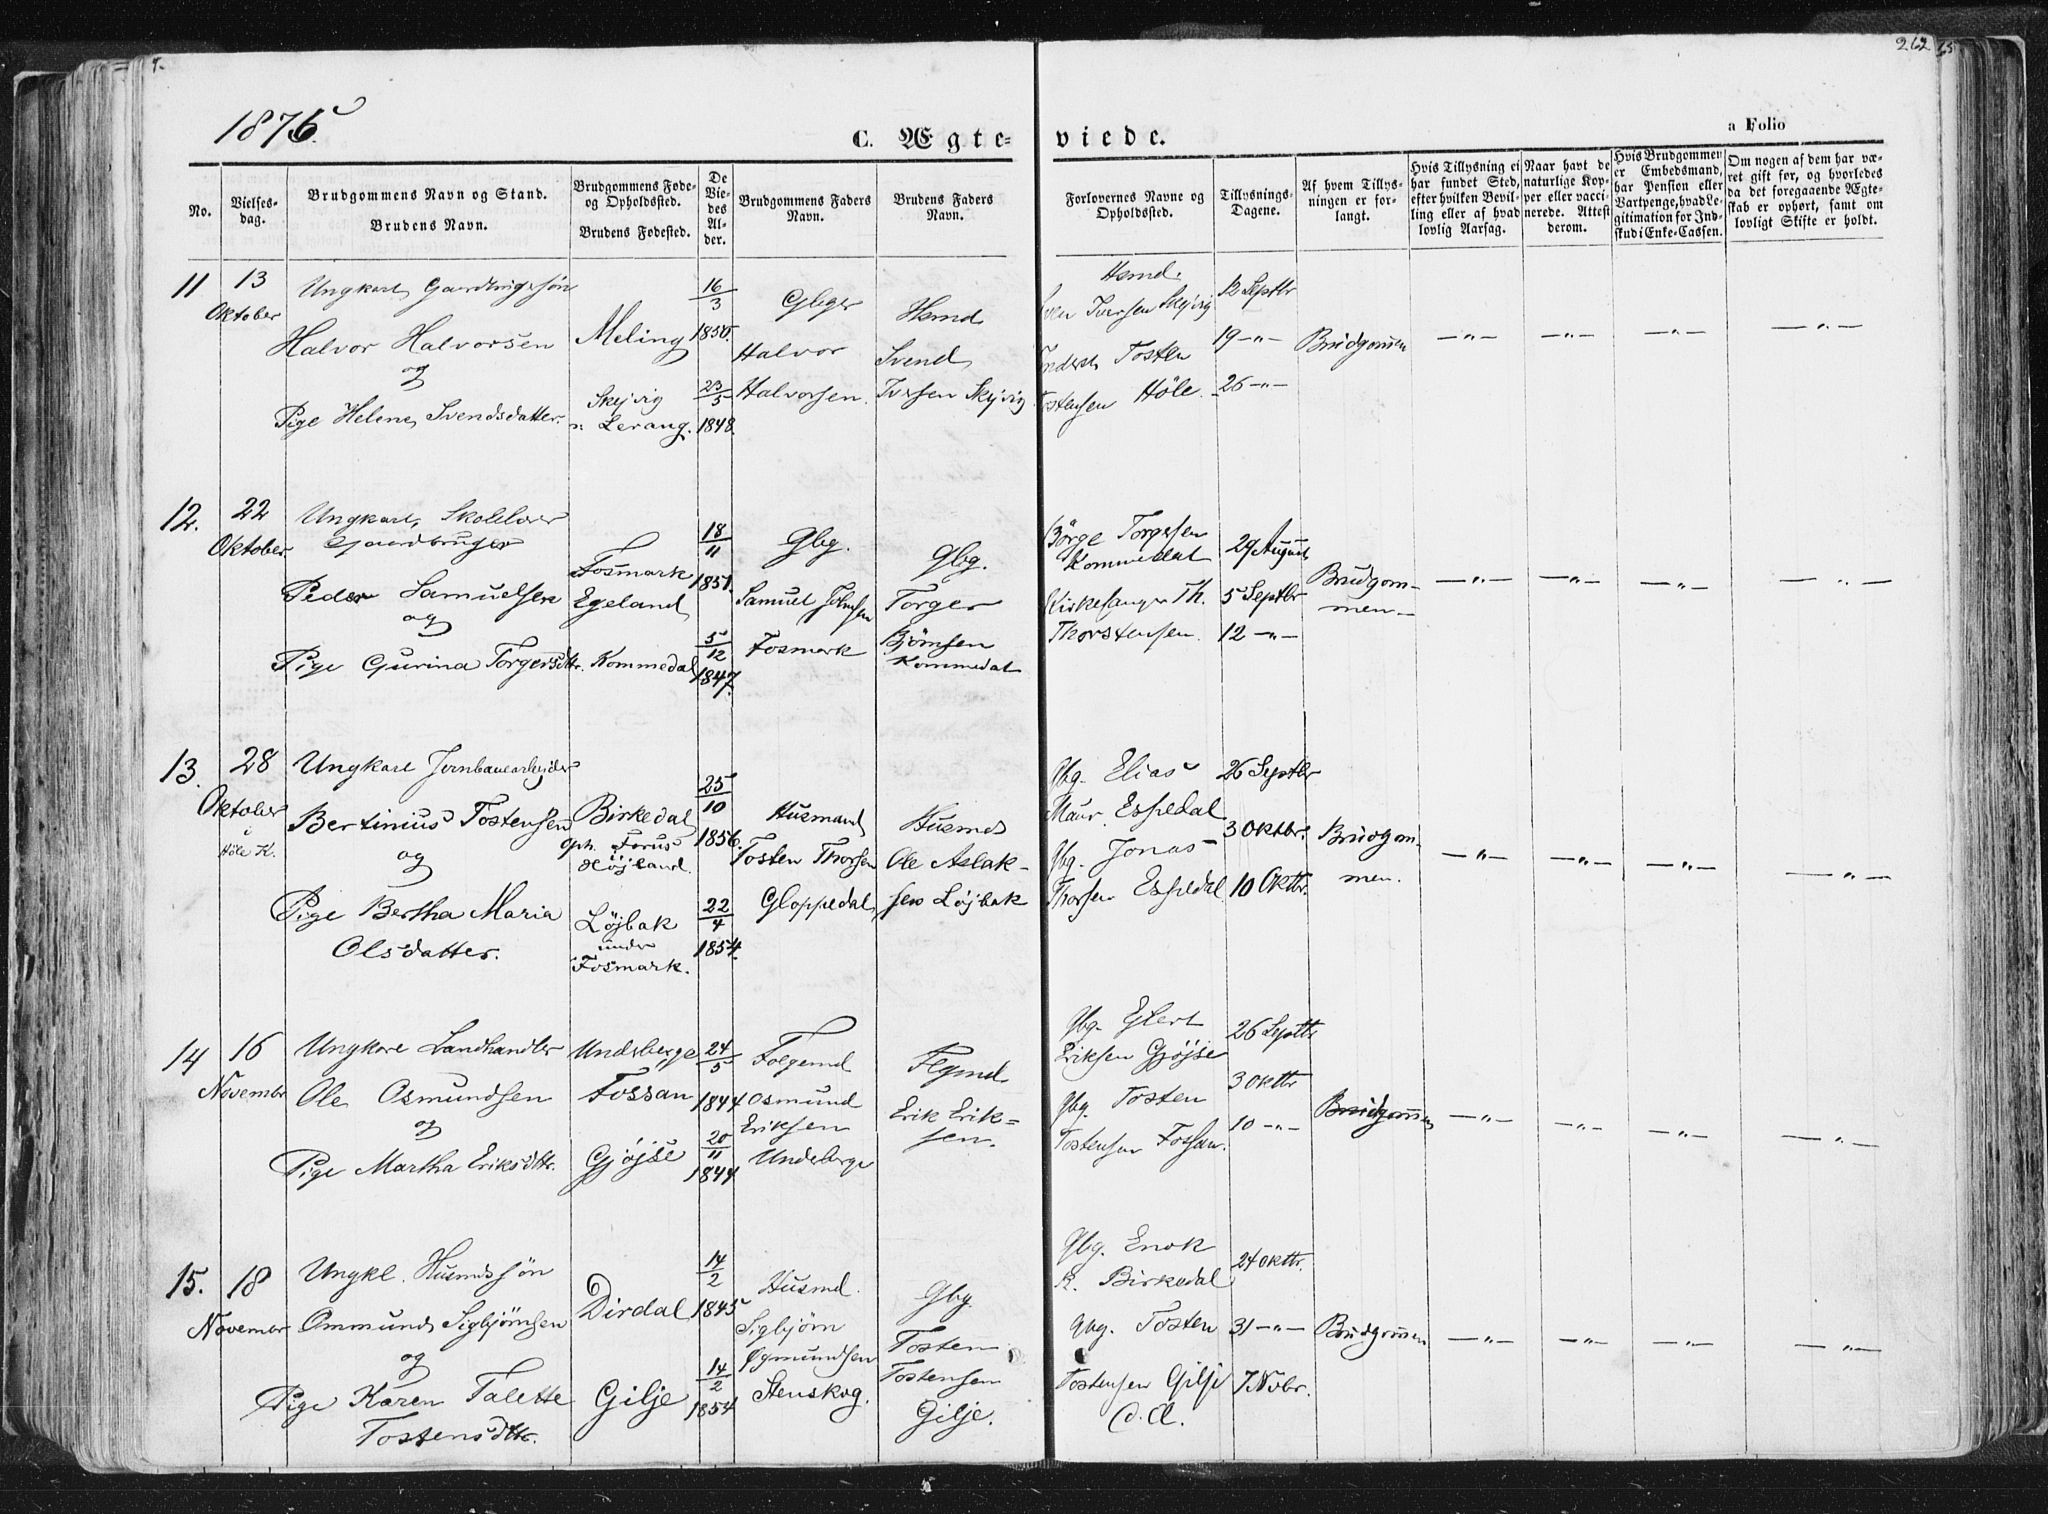 262
1875
C. Ægte-
viede.
a Folio
No.
Vielses-
dag.
Brudgommens Navn og Stand.
Brudens Navn.
Brudgommens Føde-
og Opholdssted.
Brudens Fødested.
De
Vie-
des
Al-
der.
Brudgommens Faders
Navn.
Brudens Faders
Navn.
Forlovernes Navne og
Opholdssted.
Tillysnings-
Dagene.
Af hvem Tillys-
ningen er for-
langt.
Hvis Tillysning ei
har fundet Sted,
efter hvilken Bevil-
ling eller af hvad
lovlig Aarsag.
Naar havt de
naturlige Kop-
per eller vacci-
nerede. Attest
derom.
Hvis Brudgommen
er Embedsmand,
har Pension eller
Vartpenge, hvad Le-
gitimation for Ind-
skud i Enke-Cassen.
Om nogen af dem har væ-
ret gift før, og hvorledes
da det foregaaende Ægte-
skab er ophørt, samt om
lovligt Skifte er holdt.
11
13
Oktober
Ungkarl, Gaardbrugersøn
Halvor Halvorsen
og
Pige Helene Svendsdatter.
Meling
Skejvig
u. Lerang.
16/3
1850.
23/5
1848.
Gbger
Halvor
Halvorsen.
Hsmd
Svend
Iversen Skejvig
Hsmd.
Sven Iversen Skejvig
Tosten
Tostensen Höle.
12 Septbr
19 -"-
26 -"-
Brudgommen
-"- -"- -"- -"-
12.
22
Oktober
Ungkarl, Skolelærer
Gaardbruger
Peder Samuelsen
og
Pige Gurina Torgersdtr.
Fosmark
Egeland
Kommedal
18/11
1851.
5/12
1847.
Gbg.
Samuel Johnsen
Fosmark
Gbg.
Torger
Bjömsen
Kommedal
Börge Torgersen
Kommedal
Kirkesanger Th.
Thorstensen.
29 August
5 Septbr
12 -"-
Brudgom-
men.
-"- -"- -"- -"-
13.
28
Oktober
i
Höle K.
Ungkarl Jernbanearbejder
Bertinius Tostensen
og
Pige Bertha Maria
Olsdatter.
Birkedal
oph. Forus
Højland.
Løjbak
under
Fosmark.
25/10
1856.
22/4
1854.
Husmand
Tosten Thorsen
Gloppedal
Husmd
Ole Aslak-
sen Løjbak
Gbg. Elias
Maur. Espedal
Gbg. Jonas
Thorsen Espedal
26 Septbr
3 Oktbr.
10 Oktbr.
Brudgom-
men.
-"- -"- -"- -"-
14
16
Novembr
Ungkarl Landhandler
Ole Osmundsen
og
Pige Martha Eriksdtr.
Undsberge
Fossan
Gjøjse
24/5
1844
20/11
1844
Folgemd
Osmund
Eriksen
Undsberge
Flgmd
Erik Erik-
sen.
Gbg. Eglert
Eriksen Gjøjse
Gbg. Tosten
Tostensen Fossan.
26 Septbr
3 Oktbr
10 -"-
Brudgommen
-"- -"- -"- -"-
15.
18
Novembr
Ungkl. Husmdssøn
Ommund Sigbjörnsen
og
Pige Karen Talette
Tostensdtr.
Dirdal
Gilje
14/2
1845
14/2
1854
Husmd.
Sigbjörn
Ogmundsen
Stenskog.
Gbg.
Tosten
Tostensen
Gilje.
Gbg. Enok
R. Birkedal
Gbg. Tosten
Tostensen Gilje
24 Oktbr.
31 -"-
7 Novbr.
Brudgommen
-"- -"- -"- -"-